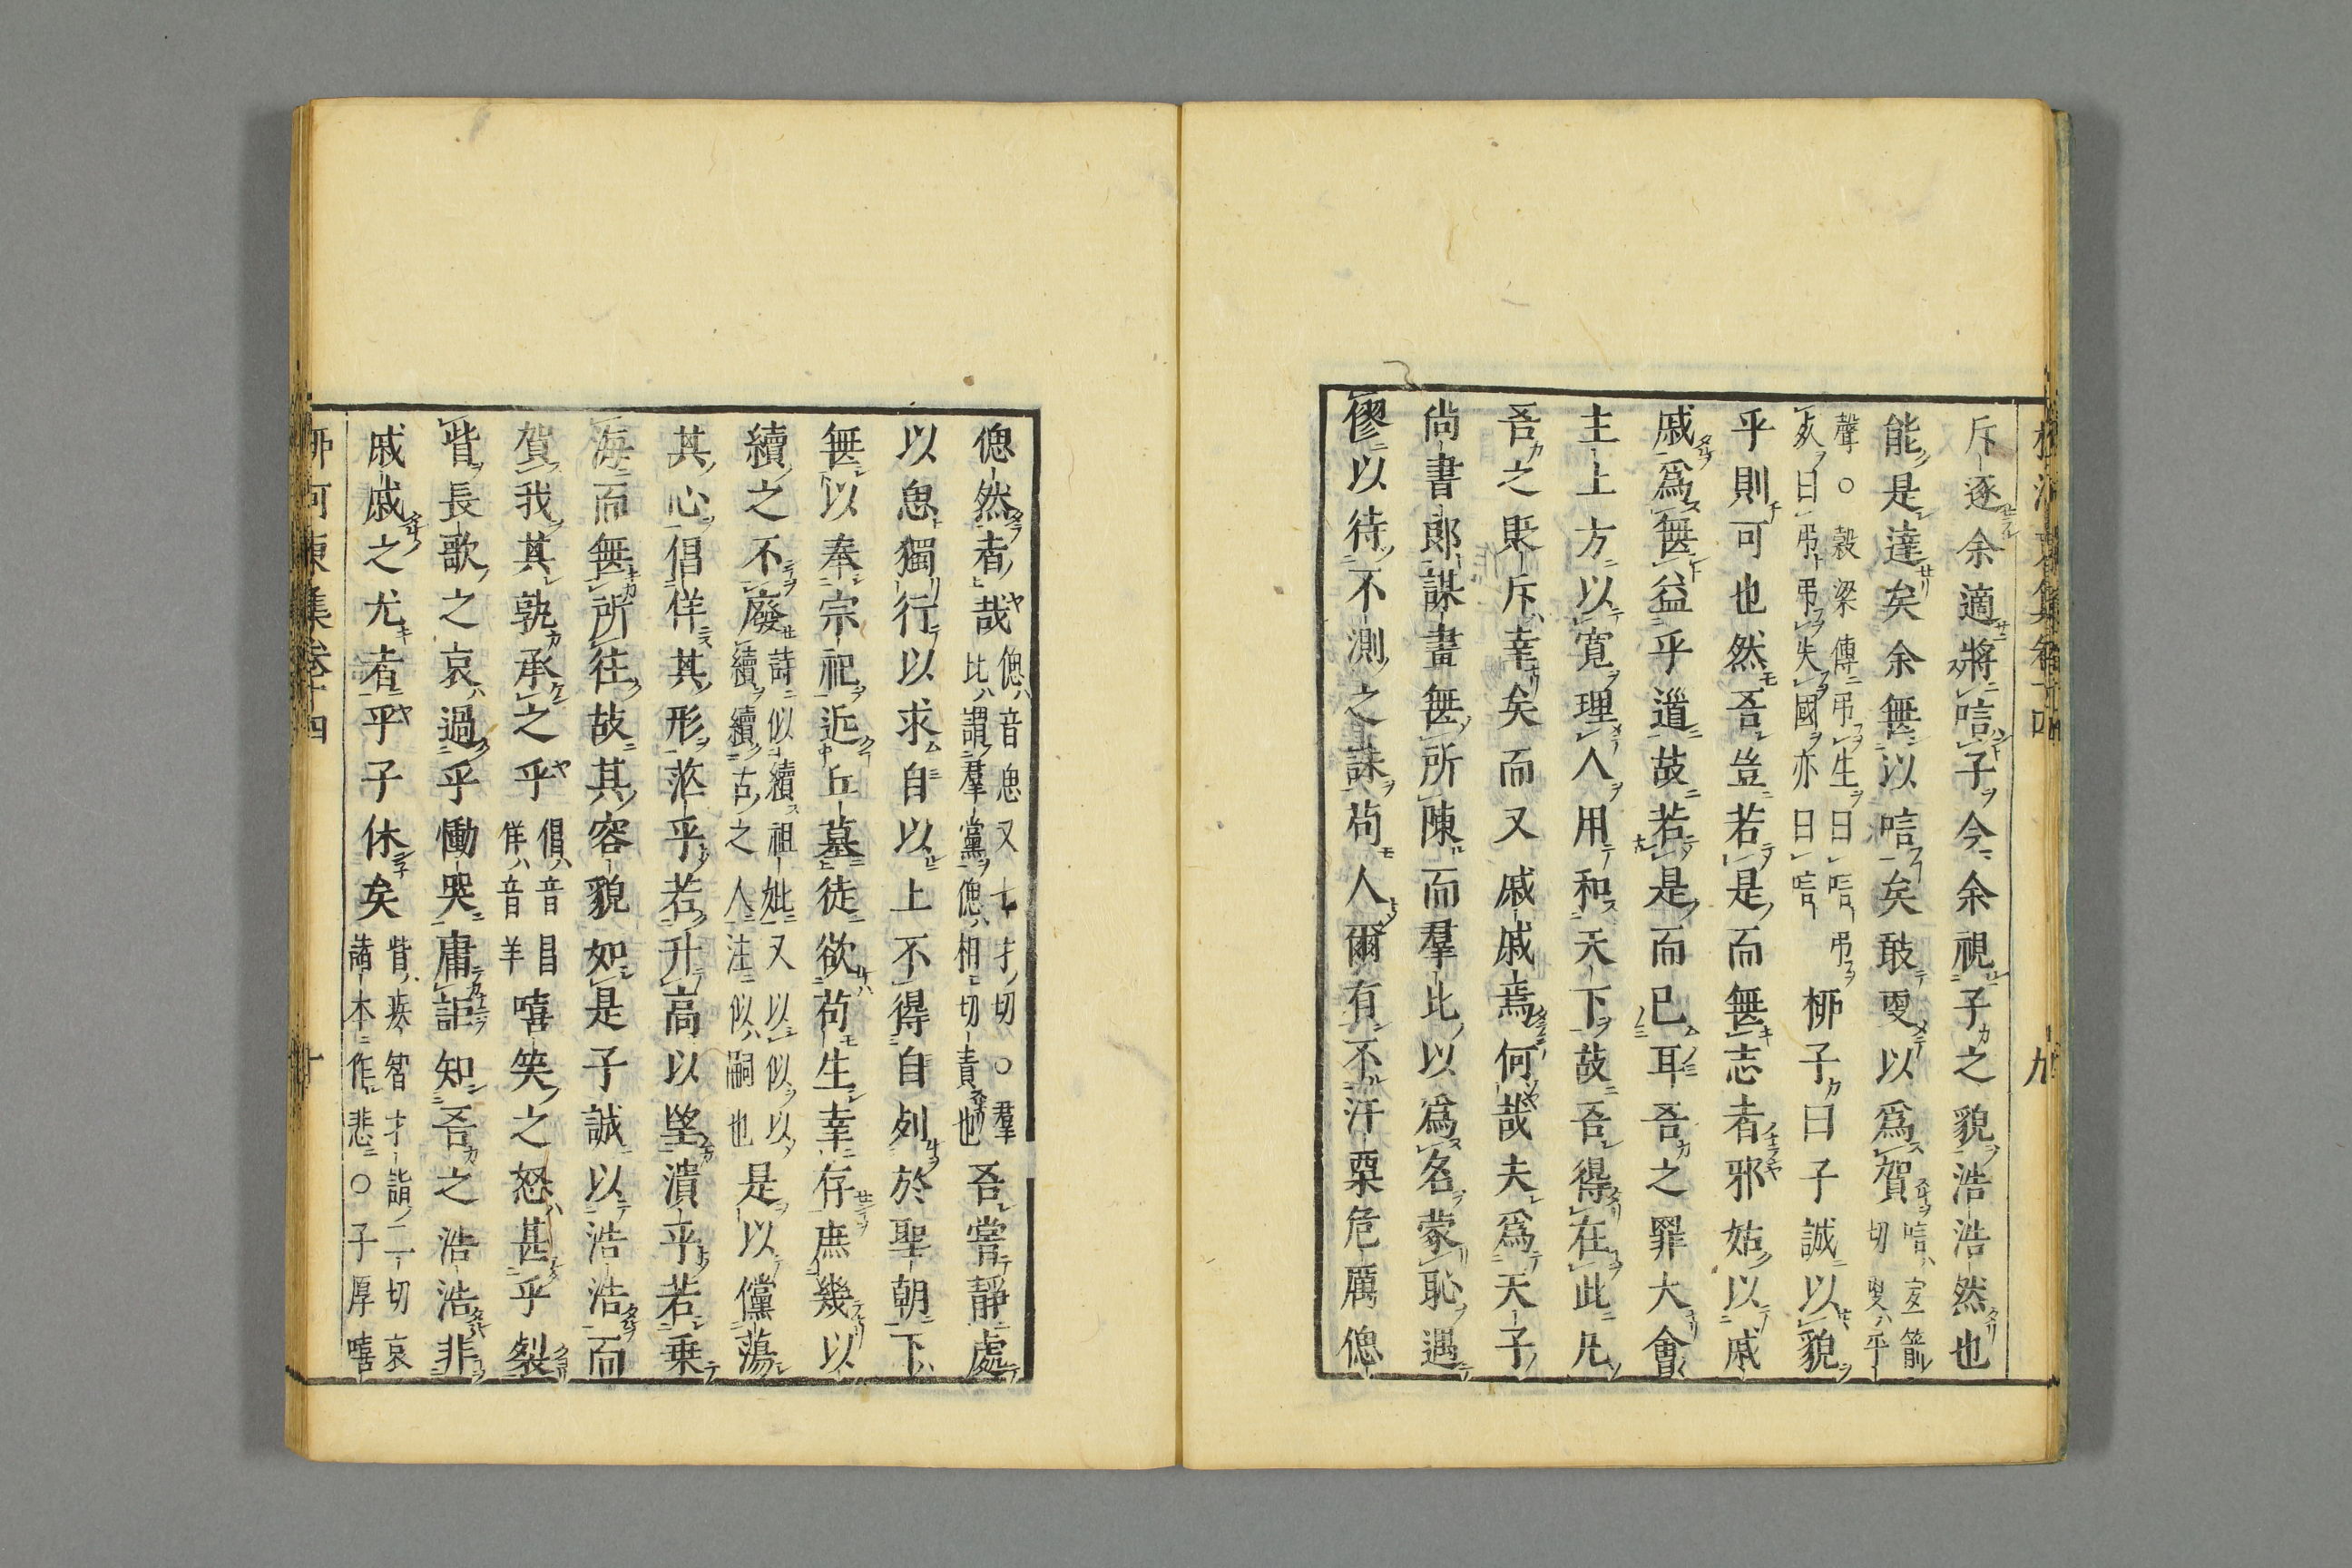 柳河東集卷十四　九
斥逐余適將唁子今余視子之貌浩浩然也
能是達矣余無以唁矣敢更以爲賀唁宜箭切更平
聲○穀梁傳弔生曰唁弔灾曰弔弔失國亦曰唁柳子曰子誠以貌
乎則可也然吾豈若是而無志者邪姑以戚
戚爲無益乎道故若是而已耳吾之罪大會
主上方以寬理人用和天下故吾得在此凡
吾之貶斥幸矣而又戚戚焉何哉夫爲天子
尚書郎謀畫無所陳而羣比以爲名蒙恥遇
僇以待不測之誅苟人爾有不汗栗危厲偲
偲然者哉偲音思又七才切○羣比謂羣黨偲相切責也吾嘗靜處
以思獨行以求自以上不得自列於聖朝下
無以奉宗祀近丘墓徒欲苟生幸存庶幾以
續之不廢詩似續祖妣又以似以續續古之人注似嗣也是以儻蕩
其心倡佯其形茫乎若升高以望潰乎若乗
海而無所往故其容貌如是子誠以浩浩而
賀我其孰承之乎倡音昌佯音羊嘻笑之怒甚乎裂
眥長歌之哀過乎慟哭庸詎知吾之浩浩非
戚戚之尤者乎子休矣眥疾智才詣二切哀諸本作悲○子厚嘻
柳河東集卷十四　十